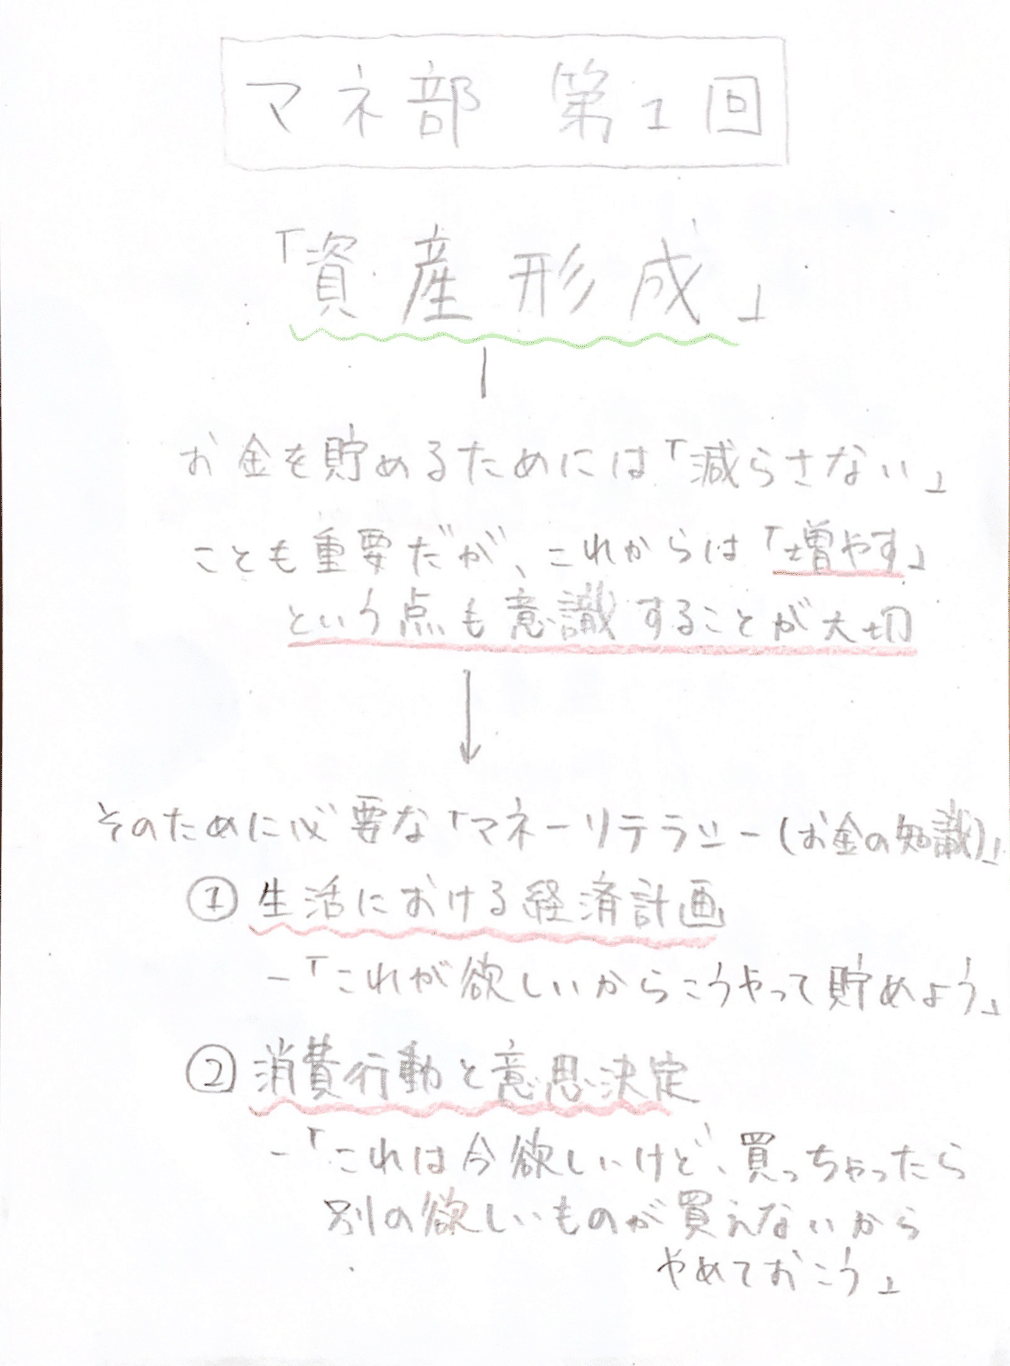 マネ部 第1回
「資産形成」
お金を貯めるためには「減らさない」
ことも重要だが、これからは「増やす」
という点も意識することが大切
そのために必要な「マネーリテラシー(お金の知識)」
① 生活における経済計画
-「これが欲しいからこうやって貯めよう」
② 消費行動と意思決定
-「これは今欲しいけど、買っちゃったら
別の欲しいものが買えないから
やめておこう」